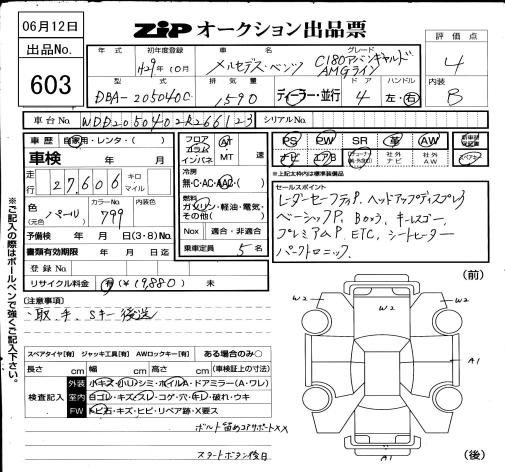 06月12日
ZIP オークション出品票
出品No.
603
年式
初年度登録
H29年10月
車名
メルセデス・ベンツ
グレード
C180アバンギャルド
AMGライン
評価点
4
型式
DBA-205040C
排気量
1590
ディーラー・並行
ドア
4
ハンドル
左・右
内装
B
車台No.
WDD2050402R266123
シリアルNo.
車歴 自家用・レンタ・( )
車検 年 月
走行 27,606 キロ マイル
色(元色) パール
カラーNo. 799
内装色
予備検 年 月 日(3・8)No.
書類有効期限 年 月 日
登録No.
リサイクル料金 有(¥19,880) 未
フロア コラム インパネ
AT
MT 速
冷房
無・C・AC・AAC・( )
燃料
ガソリン・軽油・電気・その他( )
Nox 適合・非適合
乗車定員 5 名
PS PW SR 革 AW
ナビ エアB
社外ナビ 社外AW
※上記太枠内は標準装備品
セールスポイント
レーダーセーフティP. ヘッドアップディスプレイ
ベーシックP. Bカメラ キーレスゴー
プレミアムP. ETC. シートヒーター
パークトロニック.
※ご記入の際はボールペンで強くご記入下さい。
[注意事項]
取、手、Sキー後送
スペアタイヤ[有] ジャッキ工具[有] AWロックキー[有] ある場合のみ○
長さ cm 幅 cm 高さ cm (車検証上の寸法)
検査記入
外装 小キズ・小凹・シミ・ホイルA・ドアミラー(A・ワレ)
室内 ヨゴレ・キズ・スレ・コゲ・穴・キレ・破れ・ウキ
FW トビ石・キズ・ヒビ・リペア跡・X要ス
ボルト留めコアサポートXX
スタートボタン後日
(前)
W2
W2
W2
A1
A1
(後)